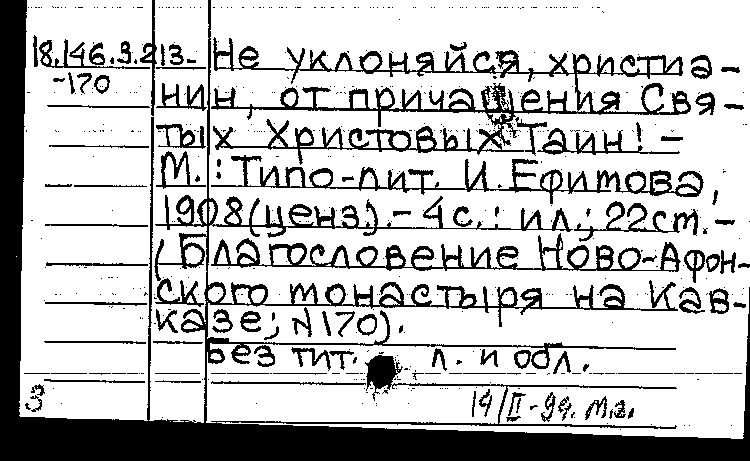 18.146.3.213- Не уклоняйся, христиа-
-170 нин, от причащения Свя-
тых Христовых Таин! -
М.: Типо-лит. И. Ефимова,
1908 (ценз.). - 4 с.: ил.; 22 см. -
(Благословение Ново-Афон-
ского монастыря на Кав-
казе; N 170).
Без тит. л. и обл.
3